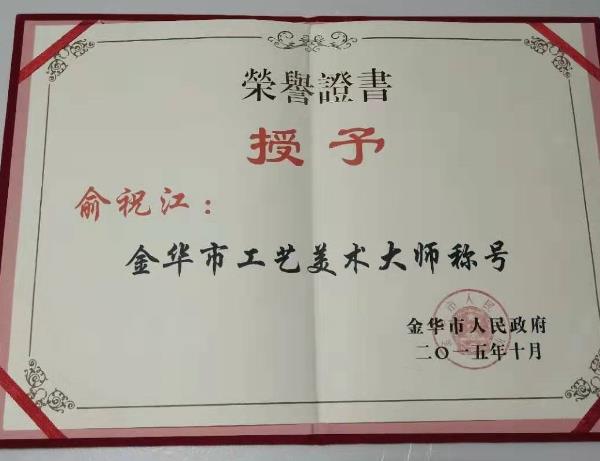 榮譽證書
授予
俞祝江：
金华市工艺美术大师称号
金华市人民政府
二〇一五年十月